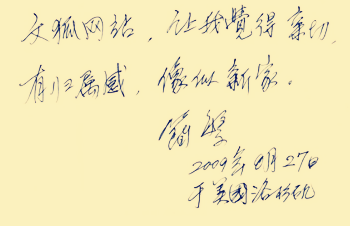 文狐网站，让我覺得亲切，
有归属感，像似新家。
2009年6月27日
于美國洛杉矶